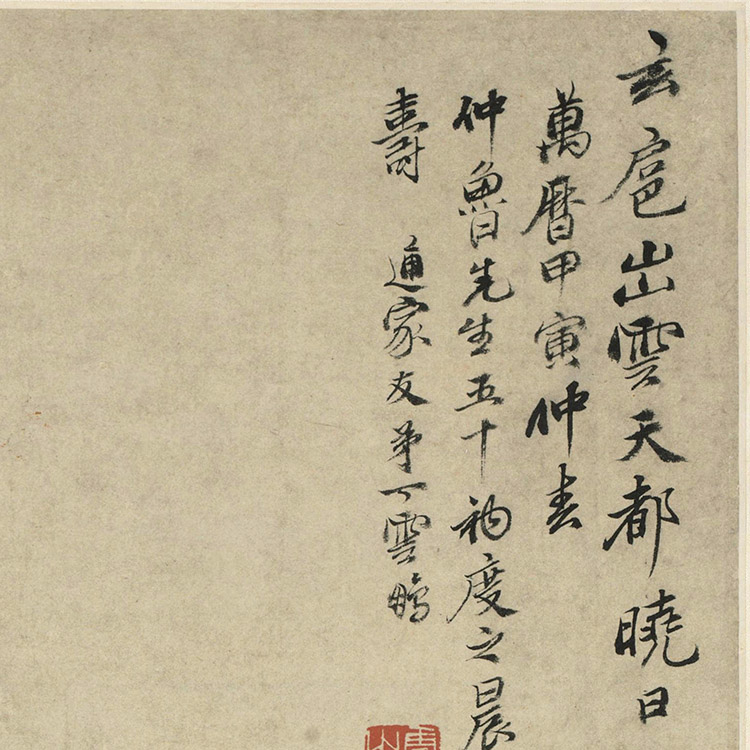 玄扈出雲天都曉日
萬曆甲寅仲春
仲魯先生五十初度之晨
壽 通家友弟丁雲鵬